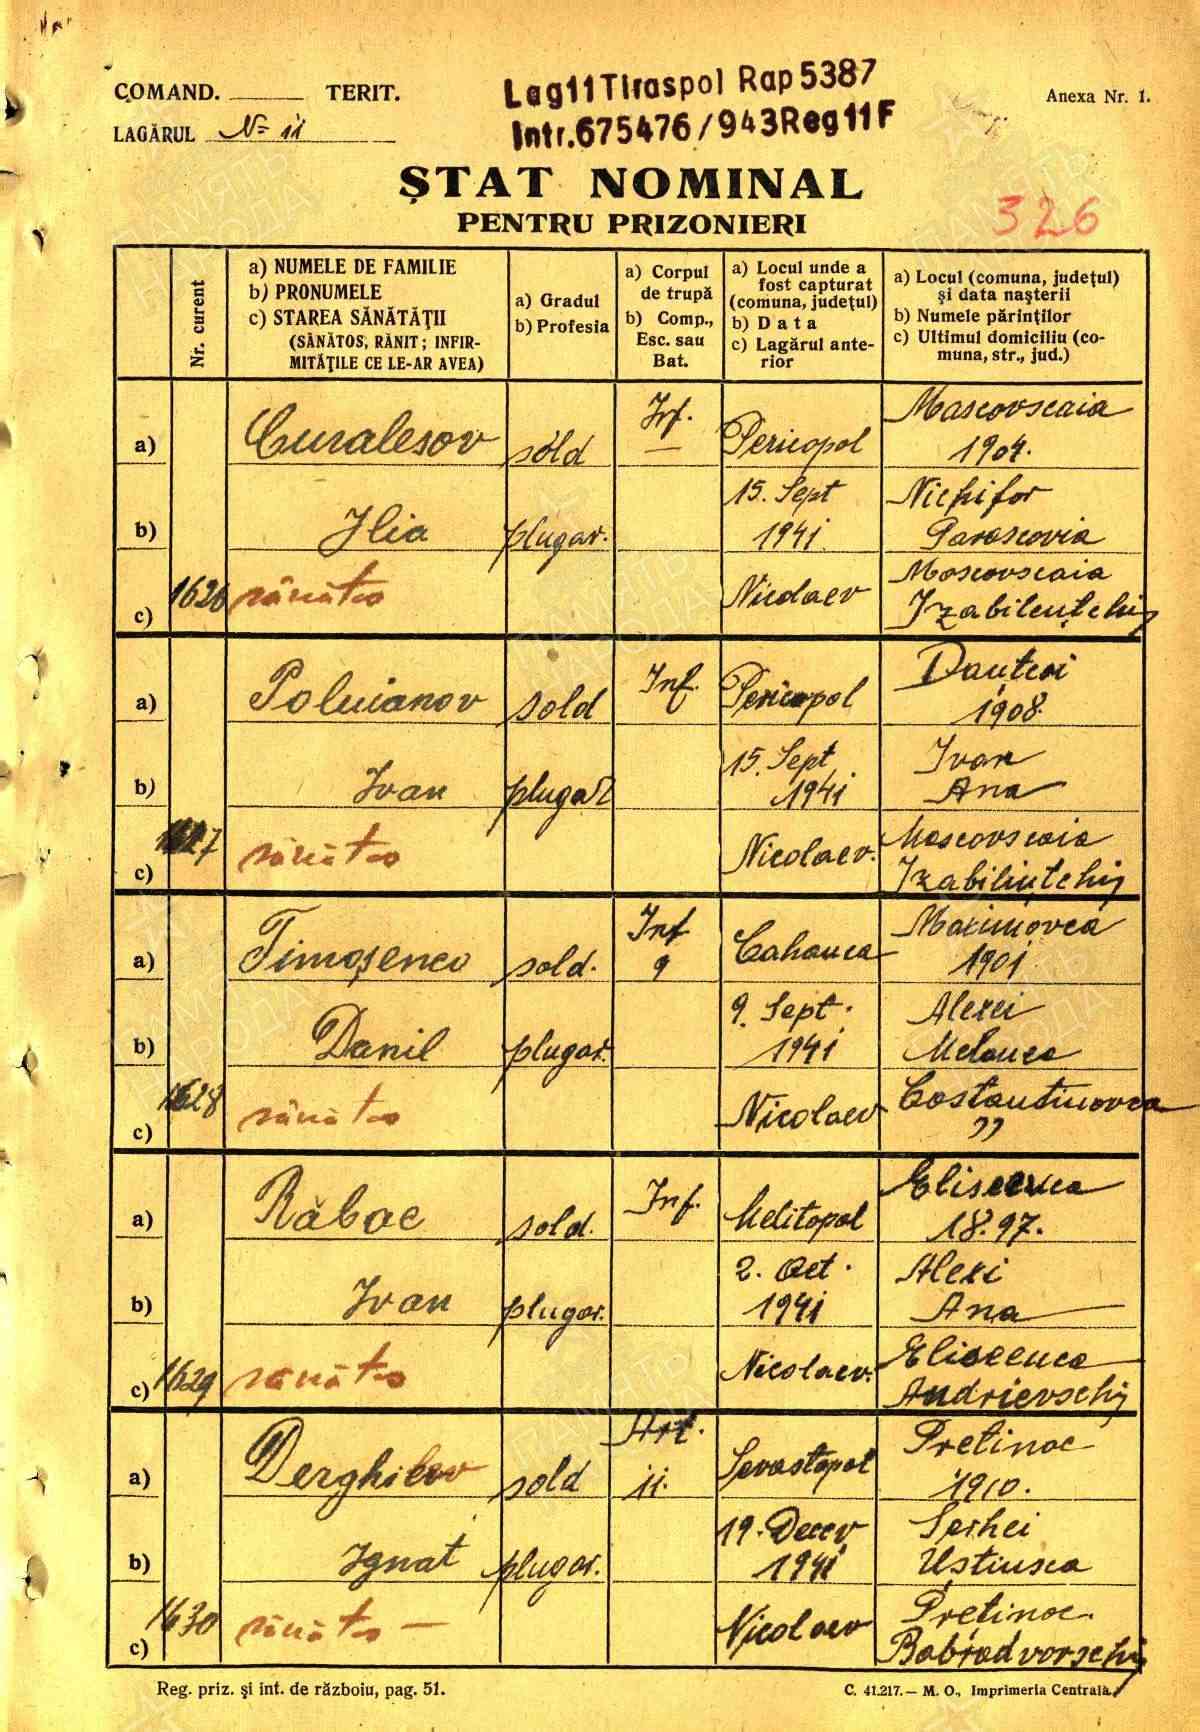 COMAND. TERIT.
LAGĂRUL No 11
Lag11Tiraspol Rap5387
Intr.675476/943Reg11F
Anexa Nr. 1.
ȘTAT NOMINAL
PENTRU PRIZONIERI
326
Nr. curent
a) NUMELE DE FAMILIE
b) PRONUMELE
c) STAREA SĂNĂTĂȚII
(SĂNĂTOS, RĂNIT; INFIR-
MITĂȚILE CE LE-AR AVEA)
a) Gradul
b) Profesia
a) Corpul
de trupă
b) Comp.,
Esc. sau
Bat.
a) Locul unde a
fost capturat
(comuna, județul)
b) Data
c) Lagărul ante-
rior
a) Locul (comuna, județul)
și data nașterii
b) Numele părinților
c) Ultimul domiciliu (co-
muna, str., jud.)
a) Curalesov sold Inf. — Pericopol Moscovscaia 1904.
b) Ilia plugar. 15. Sept 1941 Nichifor Parascovia
c) 1626 sănătos Nicolaev Moscovscaia Izabilențchij
a) Poluianov sold Inf. Pericopol 1908.
b) Ivan plugar 15. Sept 1941 Ivan Ana
c) 1627 sănătos Nicolaev. Moscovscaia Izabilințchij
a) Timoșenco sold. Inf 9 Cahovca Maximovca 1901.
b) Danil plugar. 9. Sept. 1941 Alexei Melanca
c) 1628 sănătos Nicolaev Costantinovca "
a) Răbac sold. Inf. Melitopol Eliseevca 18.97.
b) Ivan plugar. 2. Oct. 1941 Alexi Ana
c) 1629 sănătos Nicolaev. Eliseevca Andrievschij
a) Derghilev sold Art. 11. Sevastopol Pretinoc 1910.
b) Ignat plugar. 19. Decev 1941 Serhei Ustinsca
c) 1630 sănătos — Nicolaev Preținoc. Babradvorschij
Reg. priz. și int. de războiu, pag. 51.
C. 41.217.— M. O., Imprimeria Centrală.
ПАМЯТЬ
НАРОДА